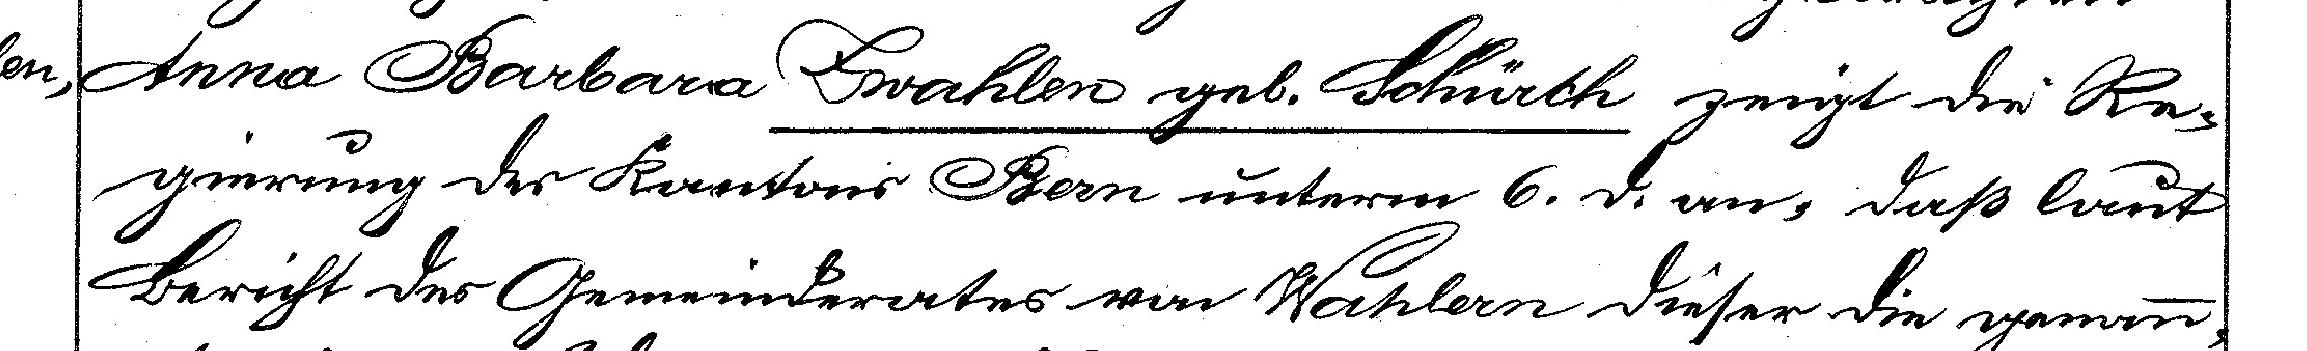 len, Anna Barbara Zwahlen geb. Schürch zeigt die Re-
gierung des Kantons Bern unterm 6. d. an, daß laut
Bericht des Gemeinderates von Wahlern dieser die genann-